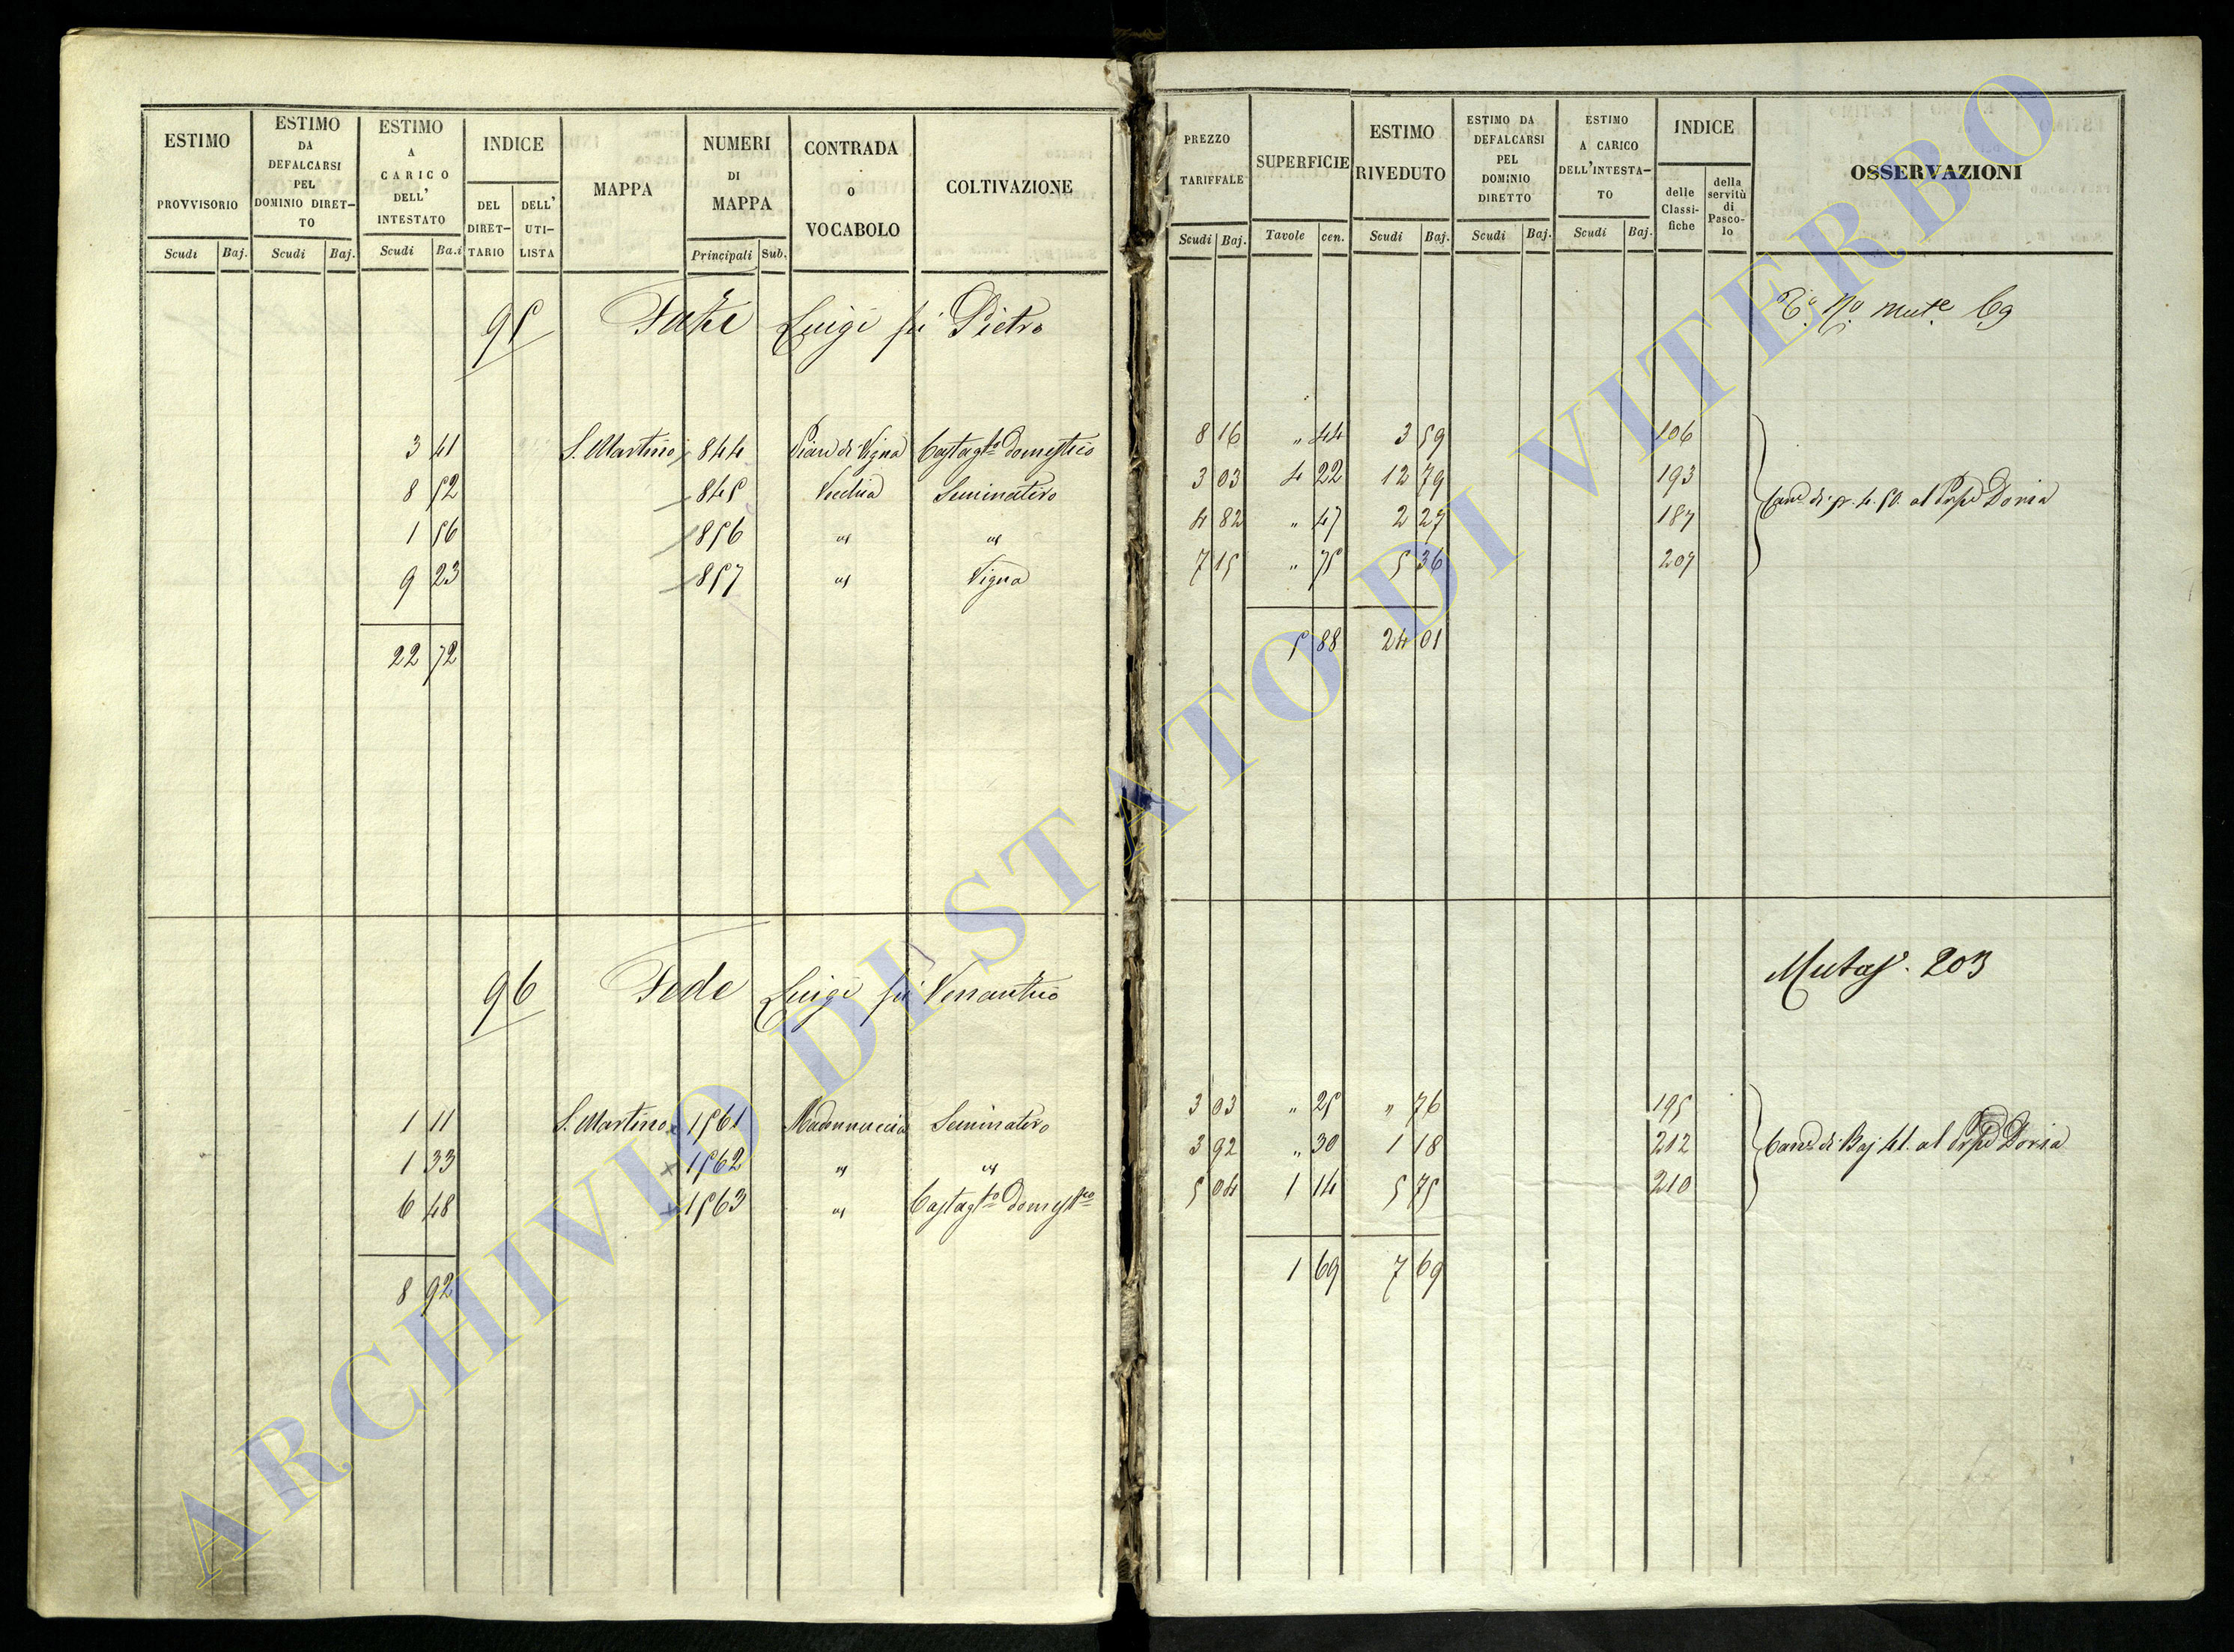 ESTIMO PROVVISORIO
Scudi Baj.
ESTIMO DA DEFALCARSI PEL DOMINIO DIRET-TO
Scudi Baj.
ESTIMO A CARICO DELL' INTESTATO
Scudi Ba.i
INDICE
DEL DIRET-TARIO
DELL' UTI-LISTA
MAPPA
NUMERI DI MAPPA
Principali Sub.
CONTRADA o VOCABOLO
COLTIVAZIONE
95 Luigi fu Pietro
3 41 S. Martino 844 Piano di Vigna Castag.to domestico
8 52 845 Vecchia Seminativo
1 56 856 " "
9 23 857 " Vigna
22 72
96 Fede Luigi fu Venantuo
1 11 S. Martino 1561 Madonnuccia Seminativo
1 33 1562 " "
6 48 1563 " Castag.to domestico
8 92
PREZZO TARIFFALE
Scudi Baj.
SUPERFICIE
Tavole cen.
ESTIMO RIVEDUTO
Scudi Baj.
ESTIMO DA DEFALCARSI PEL DOMINIO DIRETTO
Scudi Baj.
ESTIMO A CARICO DELL'INTESTA-TO
Scudi Baj.
INDICE
delle Classi-fiche
della servitù di Pasco-lo
OSSERVAZIONI
69
8 16 " 44 3 59 106
3 03 4 22 12 79 193
4 82 " 47 2 27 187
7 15 " 75 5 36 207
al Doria
5 88 24 01
203
3 03 " 25 " 76 195
3 92 " 30 1 18 212
5 04 1 14 5 75 210
di Baj 41. al Doria
1 69 7 69
ARCHIVIO DI STATO DI VITERBO